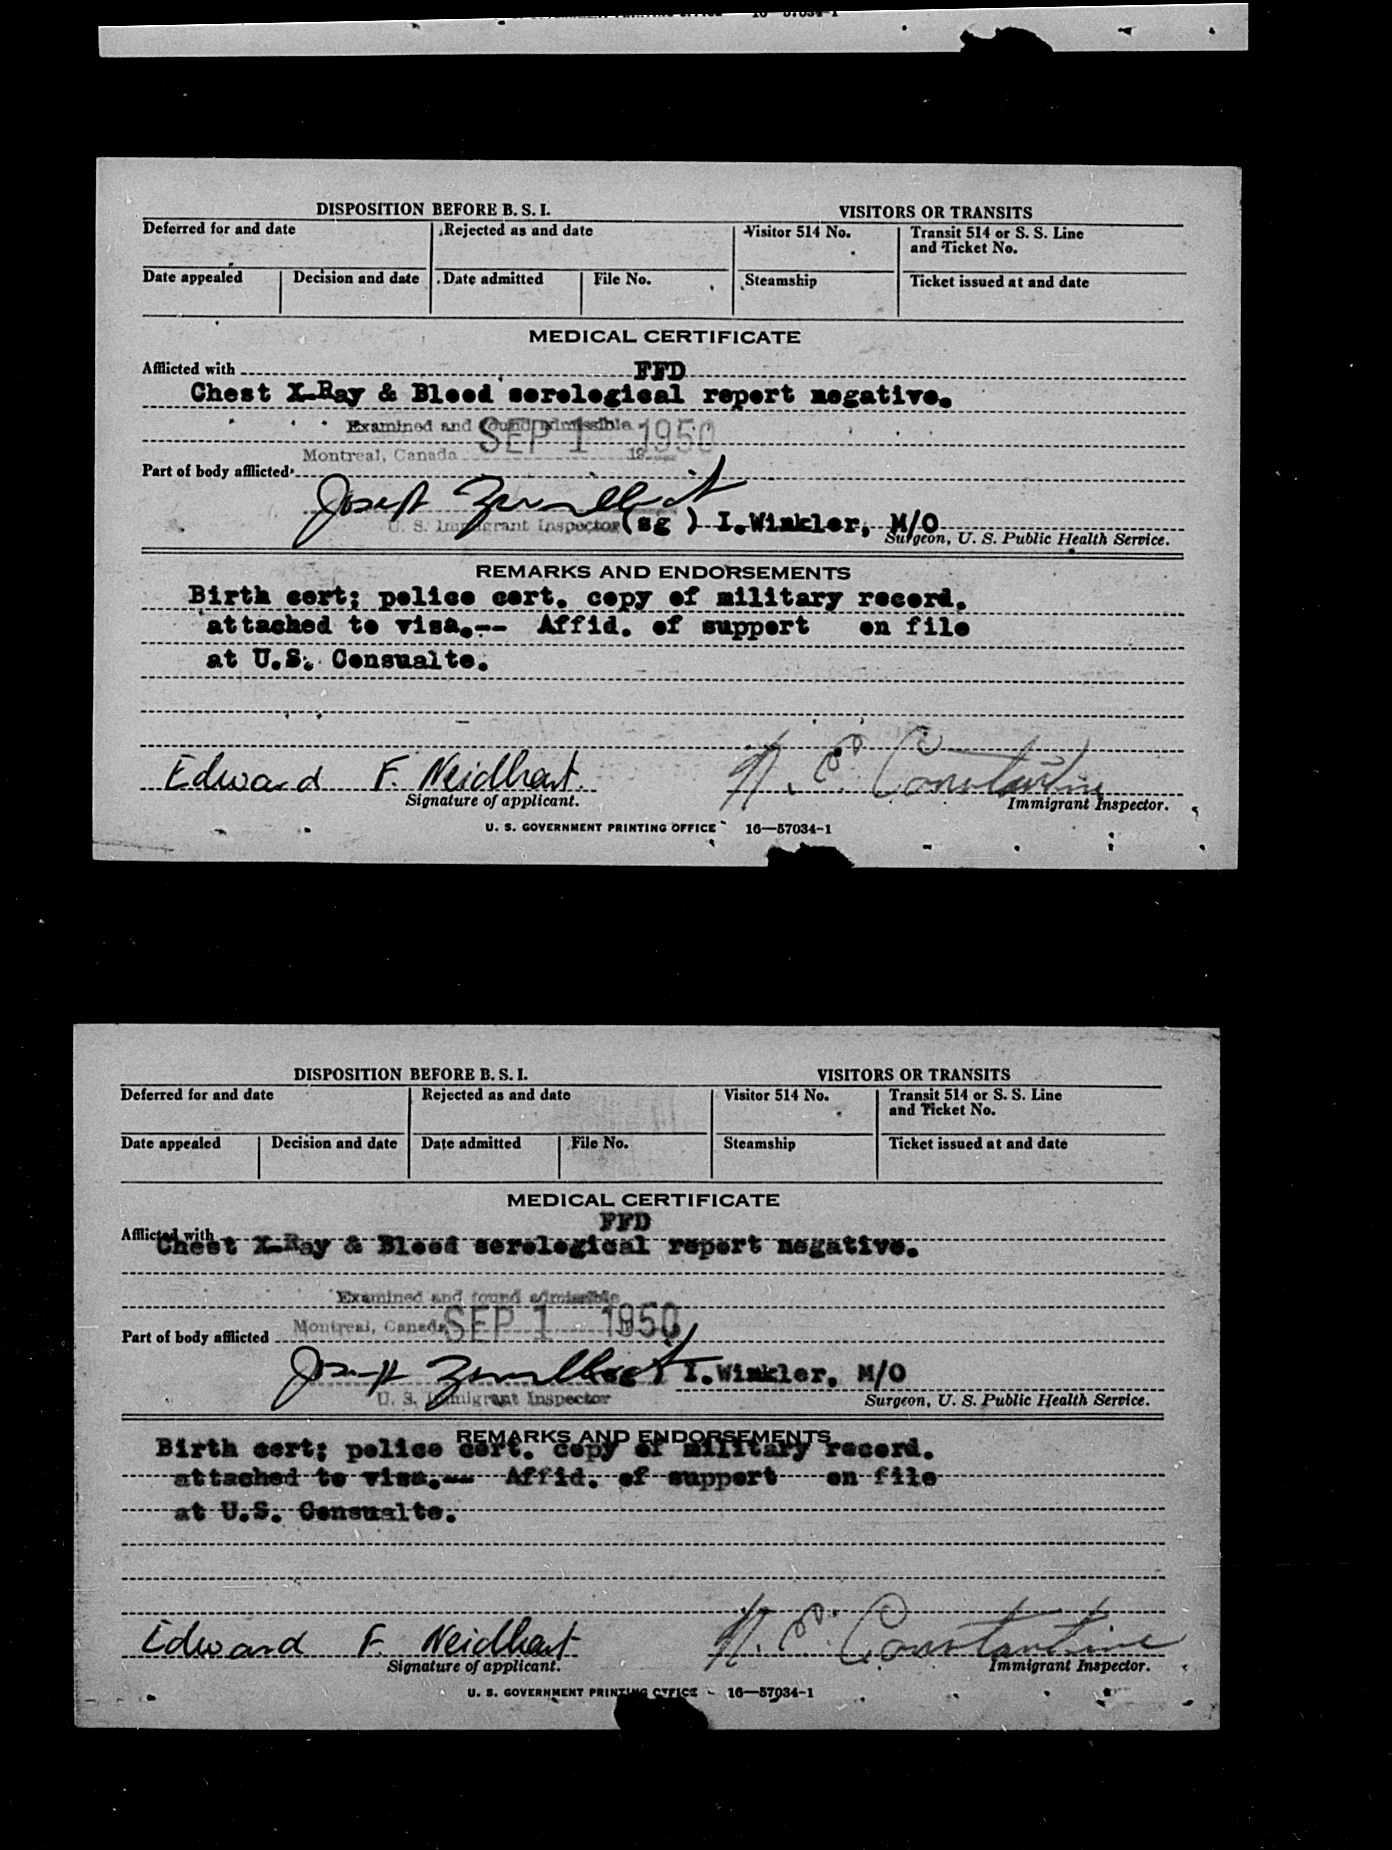 16—57034-1
DISPOSITION BEFORE B. S. I.
VISITORS OR TRANSITS
Deferred for and date
Rejected as and date
Visitor 514 No.
Transit 514 or S. S. Line
and Ticket No.
Date appealed
Decision and date
Date admitted
File No.
Steamship
Ticket issued at and date
MEDICAL CERTIFICATE
Afflicted with
FFD
Chest X-Ray & Blood serological report negative.
Examined and found admissible
SEP 1 1950
Montreal, Canada 19
Part of body afflicted
Joseph
U. S. Immigrant Inspector
(sg ) I.Winkler, M/O
Surgeon, U. S. Public Health Service.
REMARKS AND ENDORSEMENTS
Birth cert; police cert. copy of military record.
attached to visa.-- Affid. of support on file
at U.S. Consualte.
Edward F. Neidhart
N. E. Constantine
Signature of applicant.
Immigrant Inspector.
U. S. GOVERNMENT PRINTING OFFICE 16—57034-1
DISPOSITION BEFORE B. S. I.
VISITORS OR TRANSITS
Deferred for and date
Rejected as and date
Visitor 514 No.
Transit 514 or S. S. Line
and Ticket No.
Date appealed
Decision and date
Date admitted
File No.
Steamship
Ticket issued at and date
MEDICAL CERTIFICATE
FFD
Afflicted with
Chest X-Ray & Blood serological report negative.
Examined and found admissible
Montreal, Canada SEP 1 1950
Part of body afflicted
Joseph
(sg ) I.Winkler, M/O
U. S. Immigrant Inspector
Surgeon, U. S. Public Health Service.
REMARKS AND ENDORSEMENTS
Birth cert; police cert. copy of military record.
attached to visa.-- Affid. of support on file
at U.S. Consualte.
Edward F. Neidhart
N. E. Constantine
Signature of applicant.
Immigrant Inspector.
U. S. GOVERNMENT PRINTING OFFICE 16—57034-1